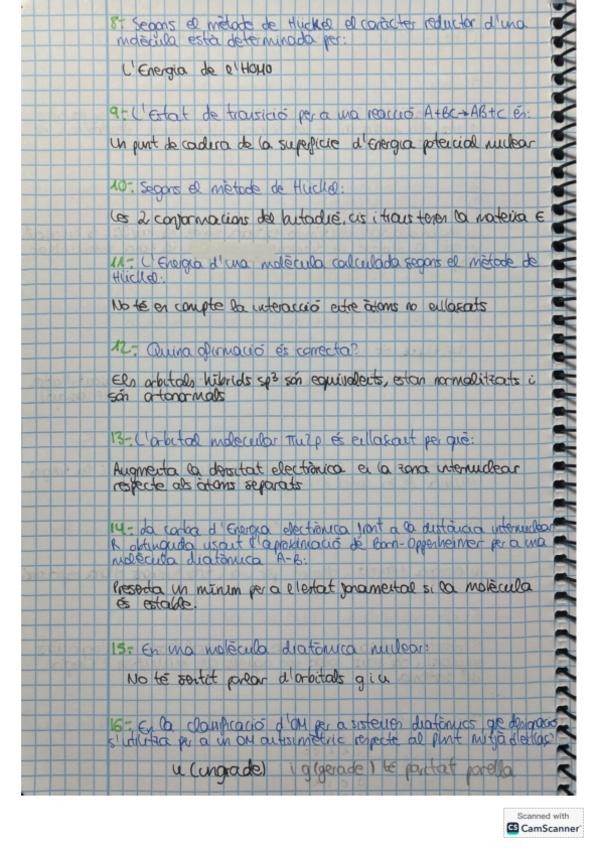 8- Segons el mètode de Hückel el caràcter reductor d'una
molècula està determinada per:
L'Energia de l'HOMO
9- L'Estat de transició per a una reacció A+BC→AB+C és:
Un punt de cadira de la superfície d'Energia potencial nuclear
10- Segons el mètode de Hückel:
Les 2 conformacions del butadiè, cis i trans tenen la mateixa E
11- L'Energia d'una molècula calculada segons el mètode de
Hückel:
No té en compte la interacció entre àtoms no enllaçats
12- Quina afirmació és correcta?
Els orbitals híbrids sp² són equivalents, estan normalitzats i
són ortonormals
13- L'orbital molecular πu2p és enllaçant per què:
Augmenta la densitat electrònica en la zona internuclear
respecte als àtoms separats
14- La corba d'Energia electrònica front a la distància internuclear
R obtinguda usant l'aproximació de Born-Oppenheimer per a una
molècula diatòmica A-B:
Presenta un mínim per a l'estat fonamental si la molècula
és estable.
15- En una molècula diatòmica nuclear:
No té sentit parlar d'orbitals g i u
16- En la classificació d'OM per a sistemes diatòmics, qe designació
s'utilitza per a un OM antisimètric respecte al punt mitjà d'enllaç?
u (ungrade) i g (gerade) té paritat parella
Scanned with
CS CamScanner